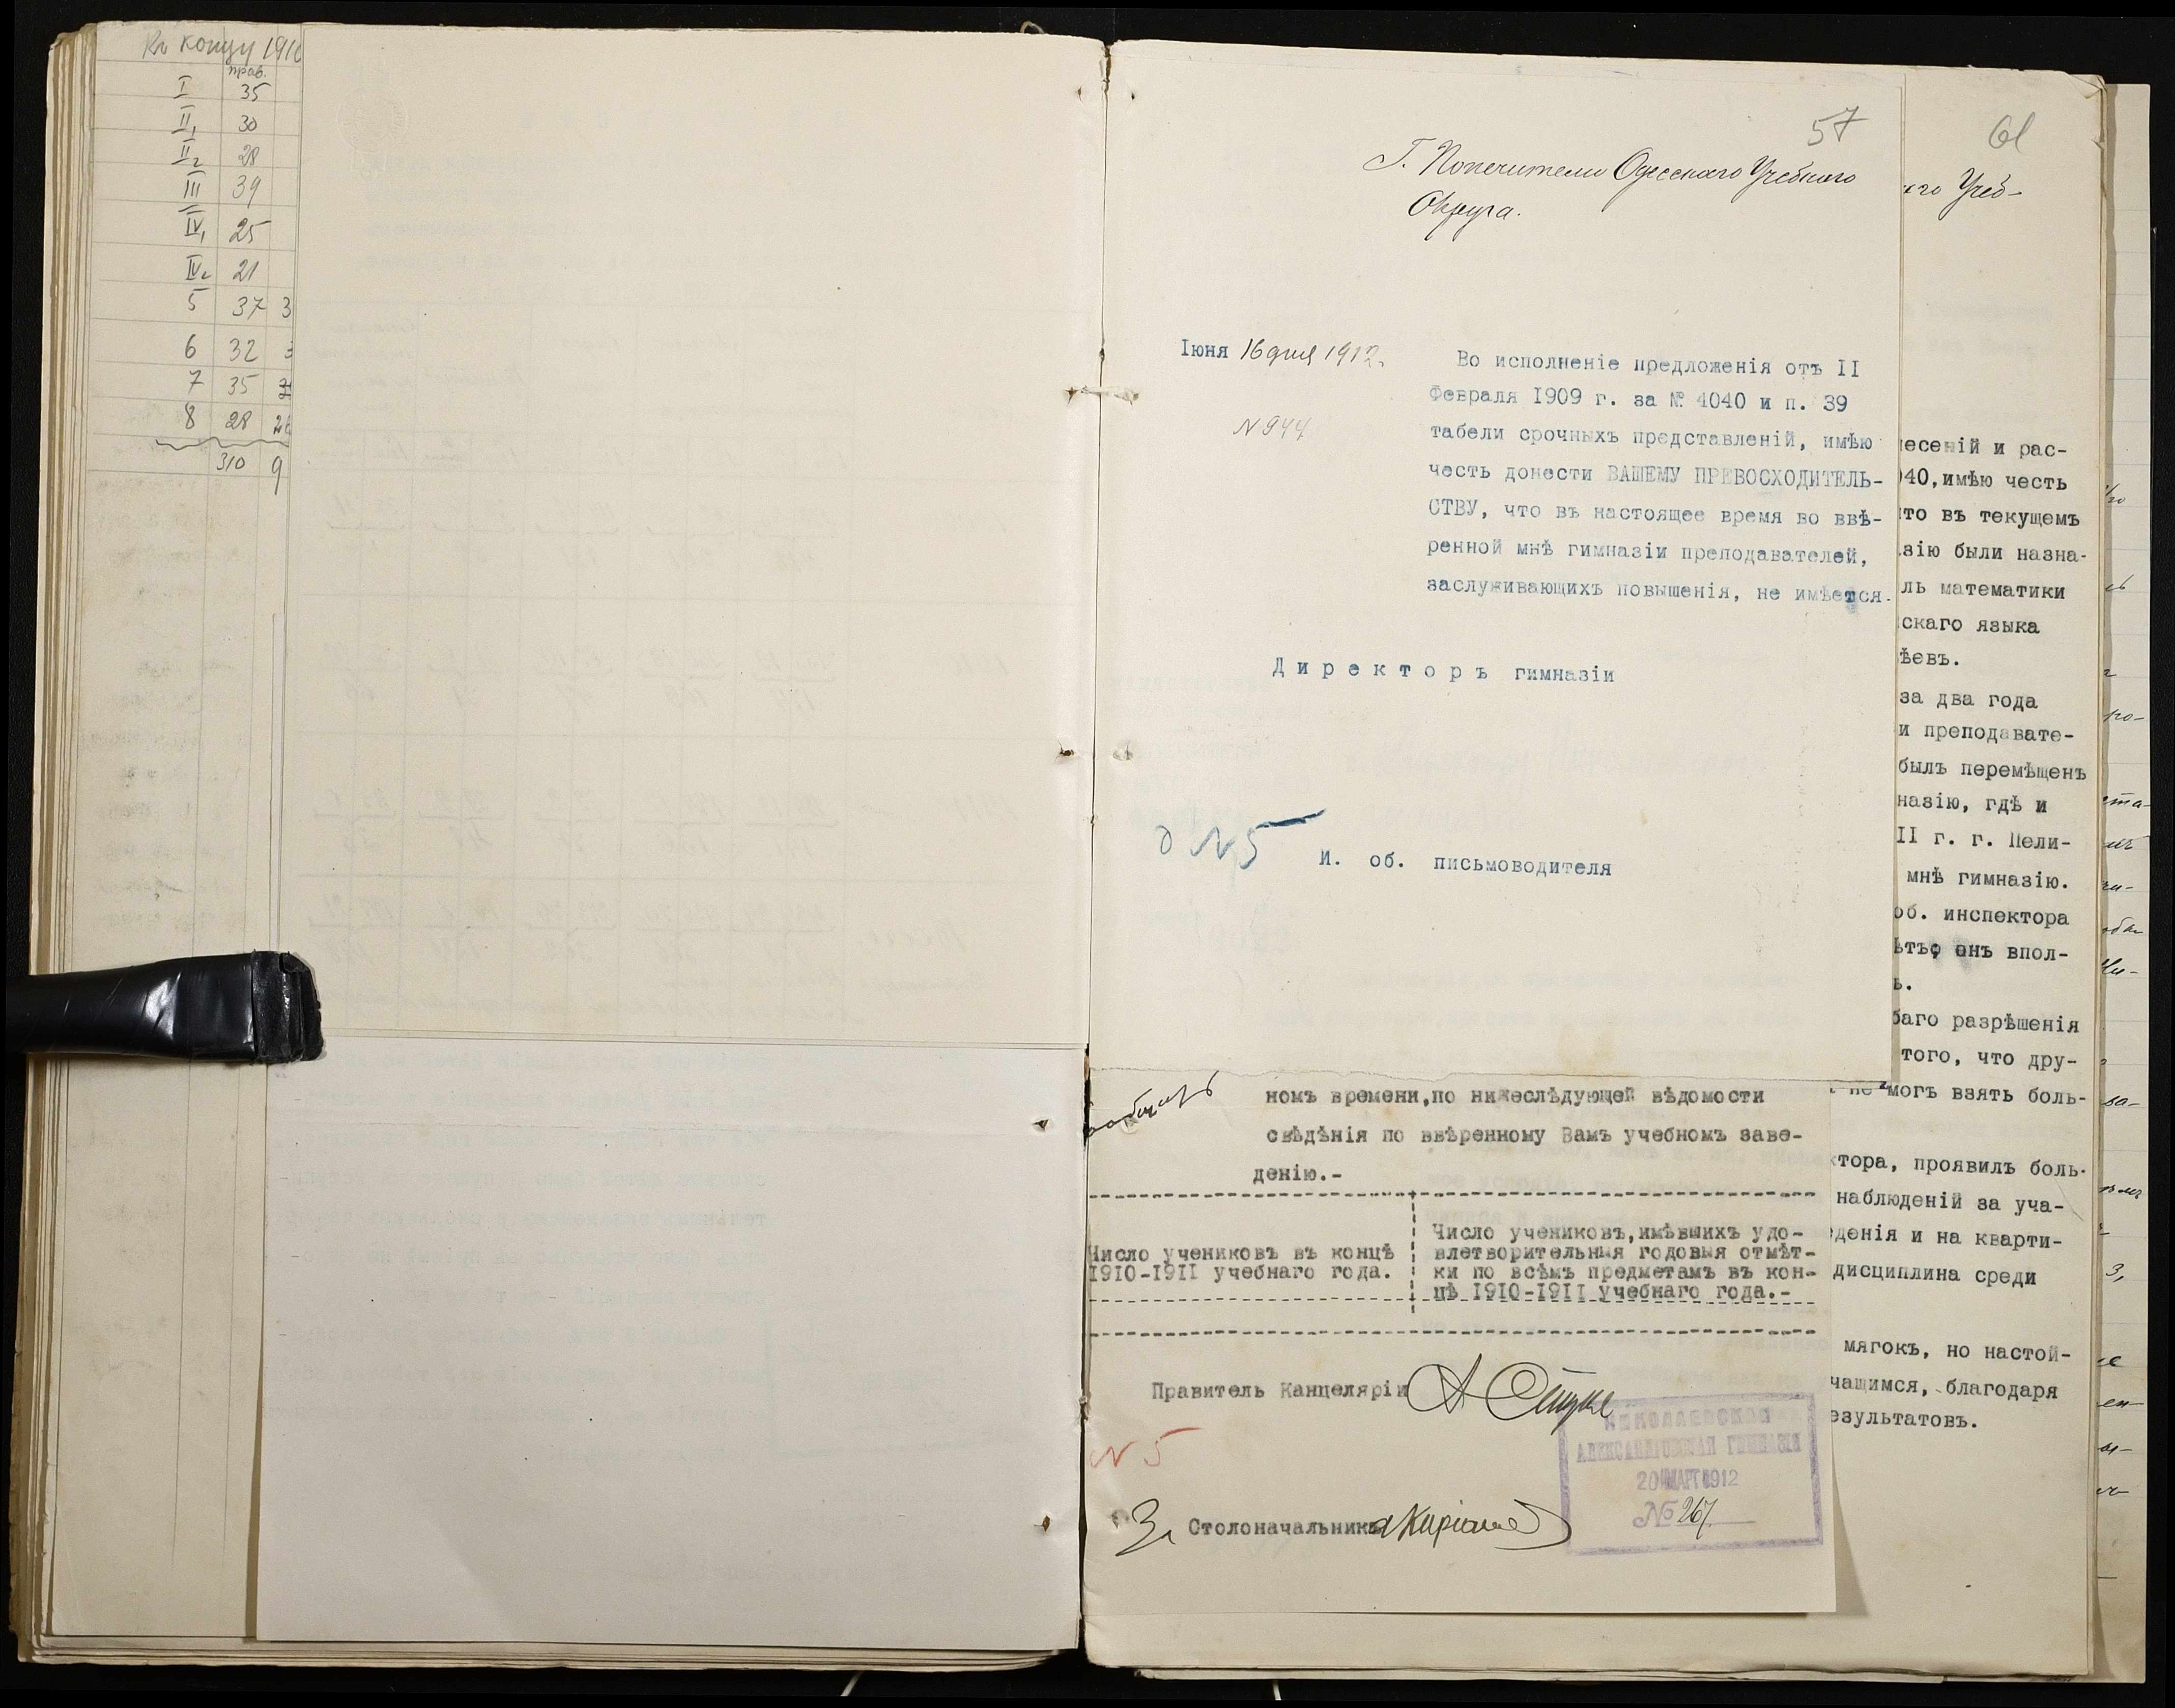 Къ концу 1910
прав.
I 35
II₁ 30
II₂ 28
III 39
IV₁ 25
IV₂ 21
5 37 3
6 32 3
7 35
8 28 26
310 9
57
Г. Попечителю Одесскаго Учебнаго
Округа.
Іюня 16 дня 1912.
N 944
Во исполненіе предложенія отъ II
Февраля I909 г. за № 4040 и п. 39
табели срочныхъ представленій, имѣю
честь донести ВАШЕМУ ПРЕВОСХОДИТЕЛЬ-
СТВУ, что въ настоящее время во ввѣ-
ренной мнѣ гимназіи преподавателей,
заслуживающихъ повышенія, не имѣется.
Директоръ гимназіи
д N5
И. об. письмоводителя
номъ времени,по нижеслѣдующей вѣдомости
свѣдѣнія по ввѣренному Вамъ учебномъ заве-
денію.-
Число учениковъ въ концѣ
I9I0-I9II учебнаго года.
Число учениковъ,имѣвшихъ удо-
влетворительныя годовыя отмѣт-
ки по всѣмъ предметамъ въ кон-
цѣ I9I0-I9II учебнаго года.-
Правитель Канцеляріи
N 5
НИКОЛАЕВСКАЯ
АЛЕКСАНДРОВСКАЯ ГИМНАЗІЯ
20 МАРТ 1912
№ 267
За Столоначальника
61
го Учеб-
несеній и рас-
040,имѣю честь
что въ текущемъ
зію были назна-
ль математики
скаго языка
ѣевъ.
за два года
и преподавате-
былъ перемѣщенъ
назію, гдѣ и
II г. г. Пели-
мнѣ гимназію.
об. инспектора
ѣтъ, онъ впол-
ь.
баго разрѣшенія
того, что дру-
не могъ взять боль-
ктора, проявилъ боль-
наблюденій за уча-
денія и на кварти-
дисциплина среди
мягокъ, но настой-
чащимся, благодаря
езультатовъ.